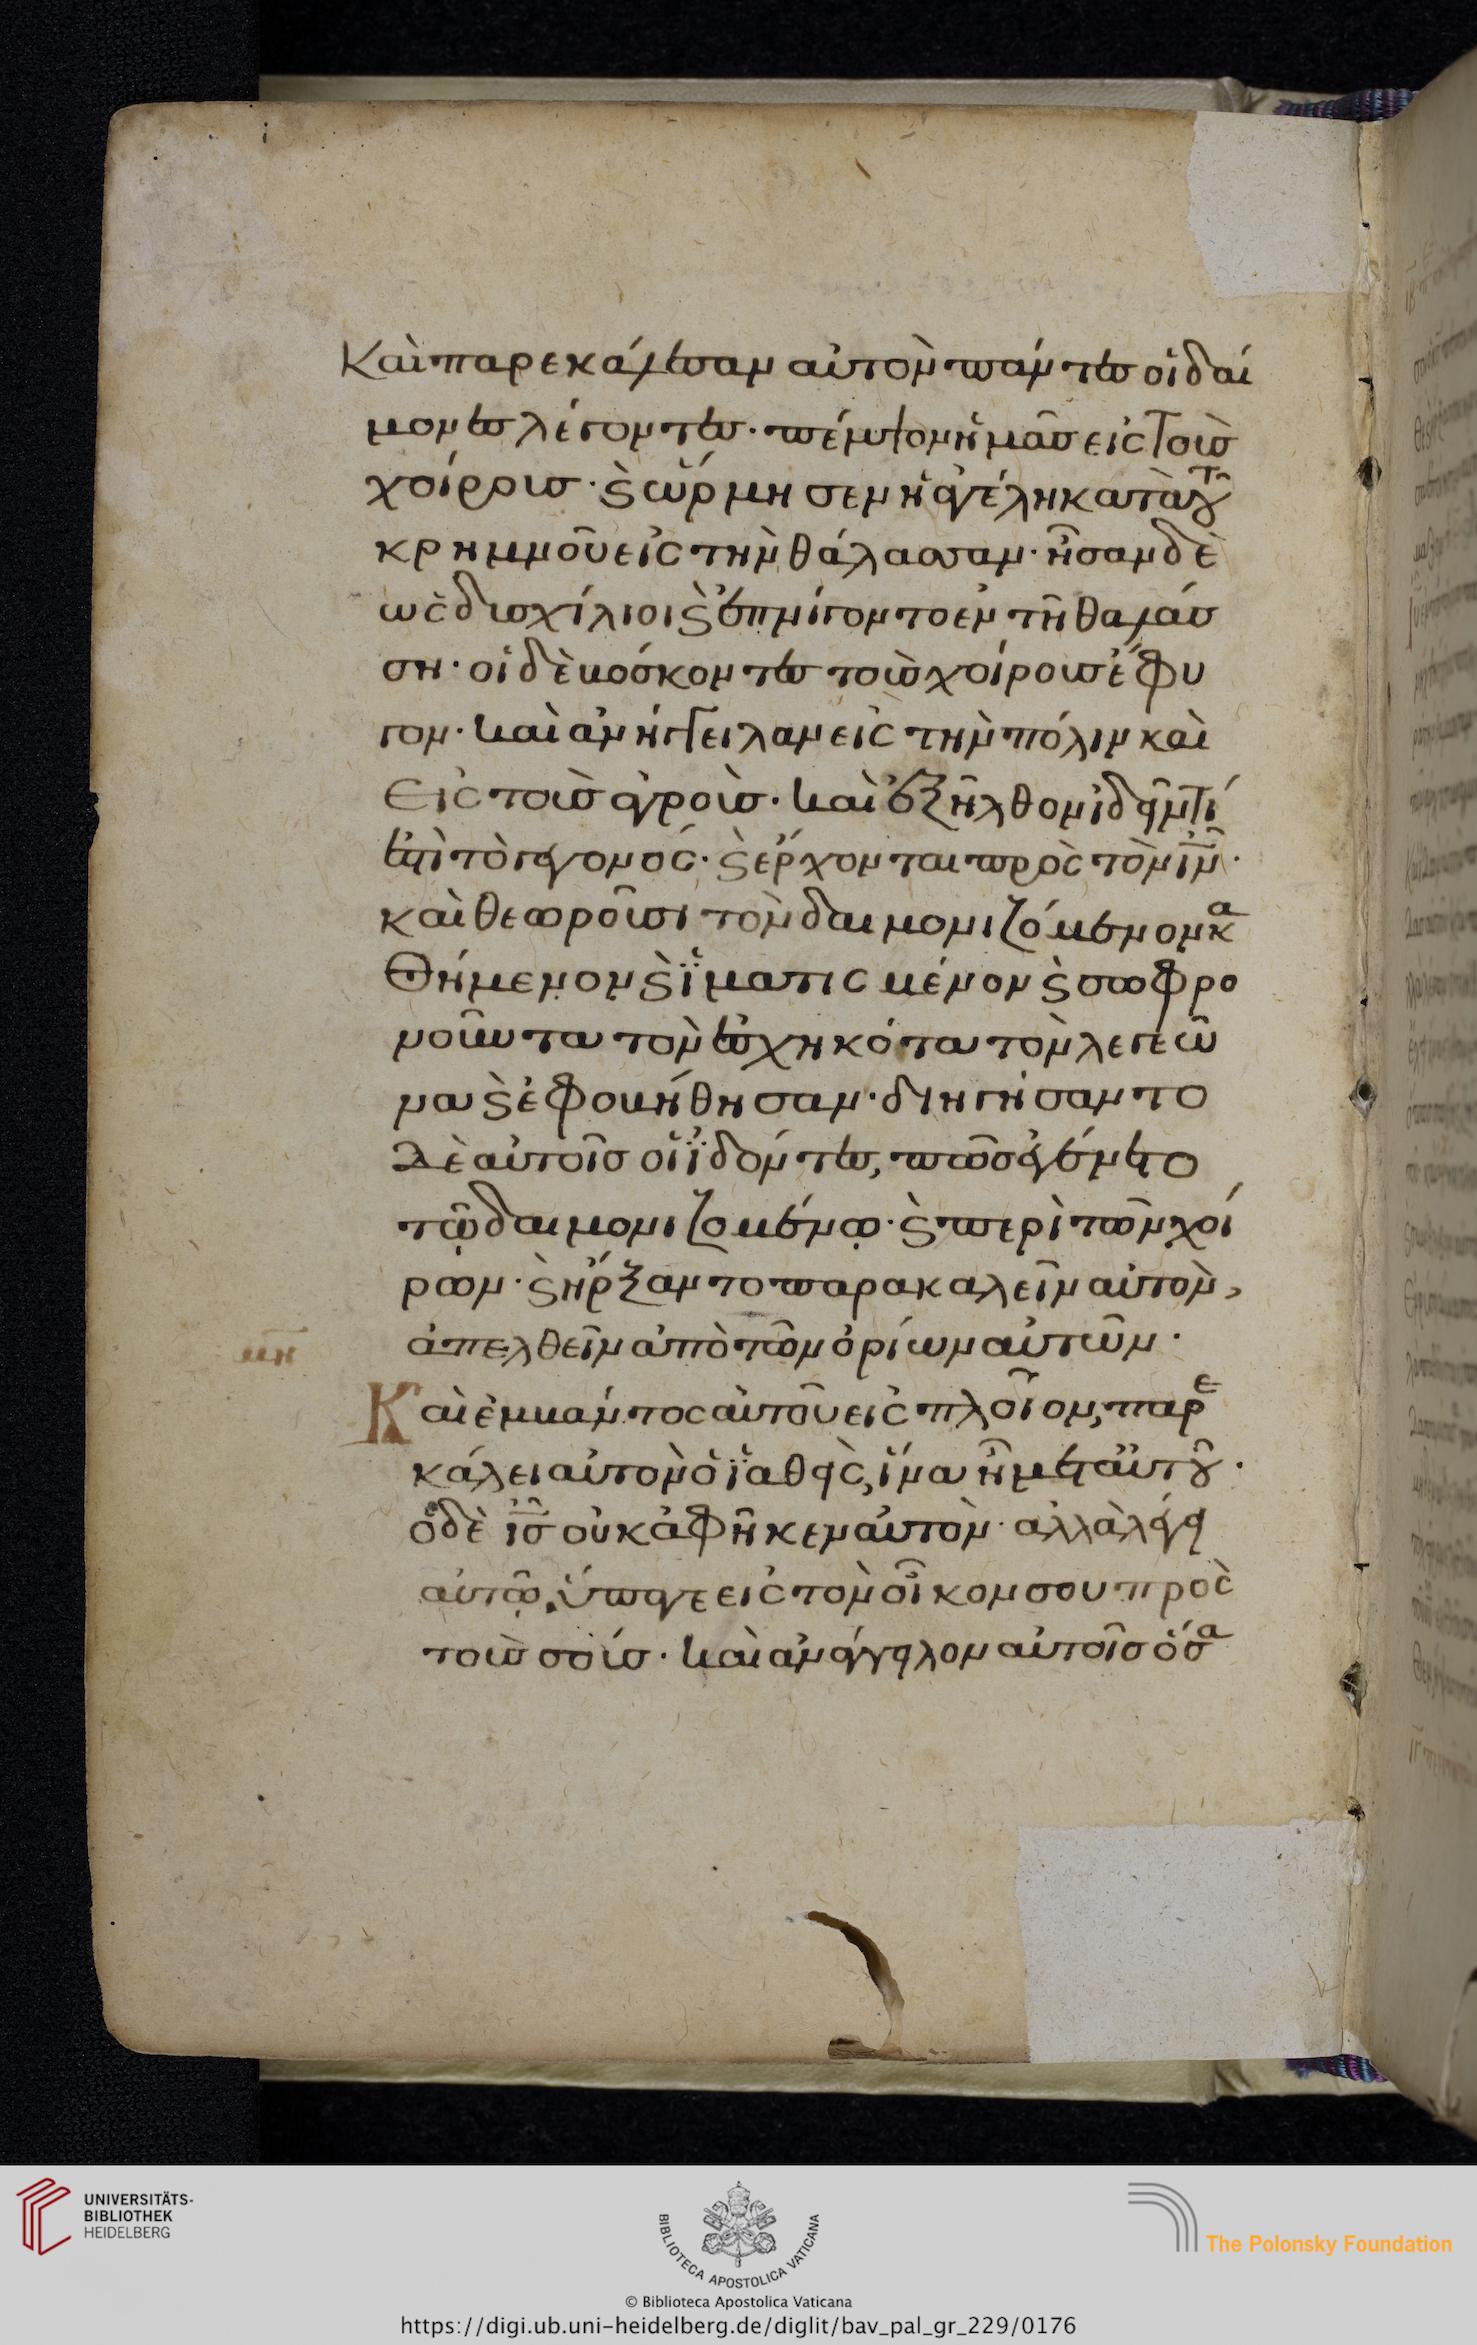 Καὶ παρεκάλεσαν αὐτὸν πάντες οἱ δαί
μονες λέγοντες· πέμψον ἡμᾶς εἰς τοὺς
χοίρους· ϗ ὥρμησεν ἡ ἀγέλη κατὰ τȣ͂
κρημνοῦ εἰς τὴν θάλασσαν· ἦσαν δὲ
ὡς δισχίλιοι ϗ ἐπνίγοντο ἐν τῇ θαλάσ
ση· οἱ δὲ βόσκοντες τοὺς χοίρους ἔφυ
γον· καὶ ἀνήγγειλαν εἰς τὴν πόλιν καὶ
εἰς τοὺς ἀγρούς· καὶ ἐξῆλθον ἰδεῖν τί
ἐστὶ τὸ γεγονός· ϗ ἔρχονται πρὸς τὸν ιν·
καὶ θεωροῦσι τὸν δαιμονιζόμενον κα
θήμενον ϗ ἱματισμένον ϗ σωφρο
νοῦντα τὸν ἐσχηκότα τὸν λεγεῶ
να ϗ ἐφοβήθησαν· διηγήσαντο
δὲ αὐτοῖς οἱ ἰδόντες, πῶς ἐγένετο
τῷ δαιμονιζομένῳ· ϗ περὶ τῶν χοί
ρων· ϗ ἤρξαντο παρακαλεῖν αὐτὸν,
ἀπελθεῖν ἀπὸ τῶν ὁρίων αὐτῶν·
μη
Καὶ ἐμβάντος αὐτοῦ εἰς πλοῖον, παρε
κάλει αὐτὸν ὁ ἰαθεὶς, ἵνα ἦ μετ αὐτȣ͂·
ὁ δὲ ις οὐκ ἀφῆκεν αὐτὸν· ἀλλὰ λέγει
αὐτῷ, ὕπαγε εἰς τὸν οἶκον σου πρὸς
τοὺς σούς· καὶ ἀνάγγειλον αὐτοῖς ὅσα
UNIVERSITÄTS-
BIBLIOTHEK
HEIDELBERG
BIBLIOTECA APOSTOLICA VATICANA
The Polonsky Foundation
© Biblioteca Apostolica Vaticana
https://digi.ub.uni-heidelberg.de/diglit/bav_pal_gr_229/0176